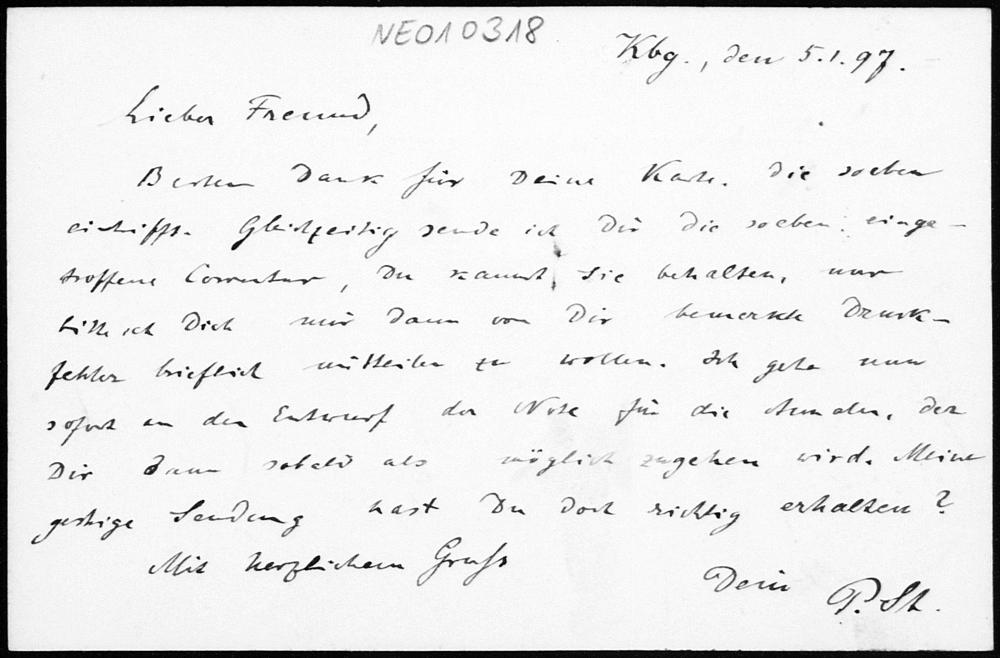 NEO10318
Kbg., den 5.1.97.
Lieber Freund,
Besten Dank für Deine Karte, die soeben
eintrifft. Gleichzeitig sende ich Dir die soeben einge-
troffene Correctur, Du kannst sie behalten, nur
bitte ich Dich mir dann von Dir bemerkte Druck-
fehler brieflich mitteilen zu wollen. Ich gehe nun
sofort an den Entwurf der Note für die Annalen, der
Dir dann sobald als möglich zugehen wird. Meine
gestrige Sendung hast Du doch richtig erhalten?
Mit herzlichem Gruss
Dein P. St.